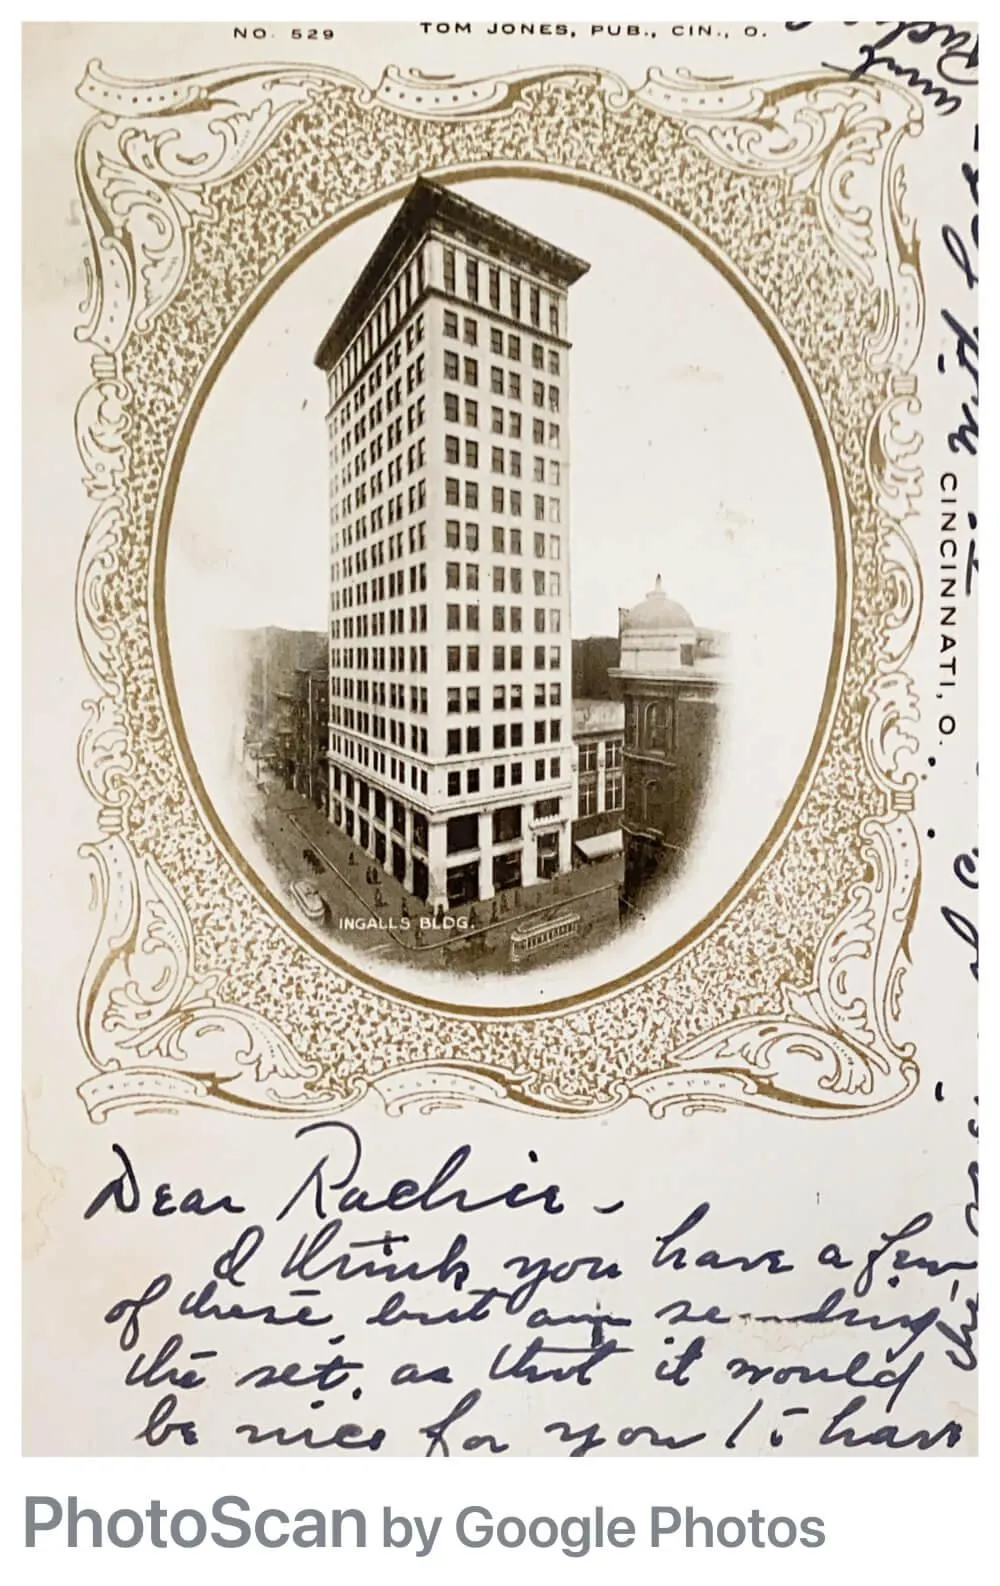 NO. 529
TOM JONES, PUB., CIN., O.
CINCINNATI, O.
INGALLS BLDG.
Dear Rachie -
I think you have a few
of these, but am sending
the set, as thot it would
be nice for you to have
PhotoScan by Google Photos